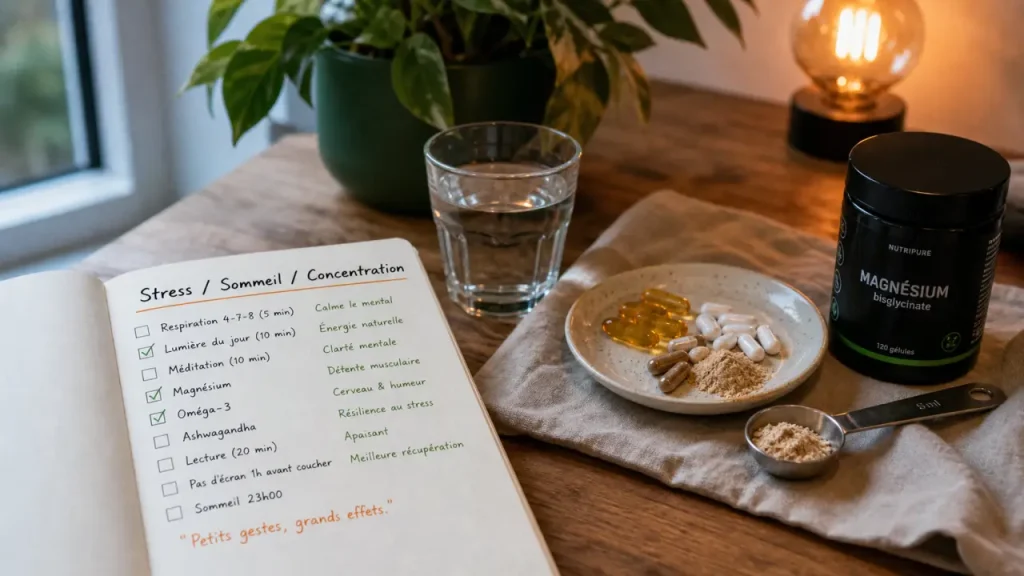 Stress / Sommeil / Concentration
Respiration 4-7-8 (5 min) Calme le mental
Lumière du jour (10 min) Énergie naturelle
Méditation (10 min) Clarté mentale
Magnésium Détente musculaire
Oméga-3 Cerveau & humeur
Ashwagandha Résilience au stress
Lecture (20 min) Apaisant
Pas d'écran 1h avant coucher Meilleure récupération
Sommeil 23h00
"Petits gestes, grands effets."
NUTRIPURE
MAGNÉSIUM
bisglycinate
120 gélules
5ml